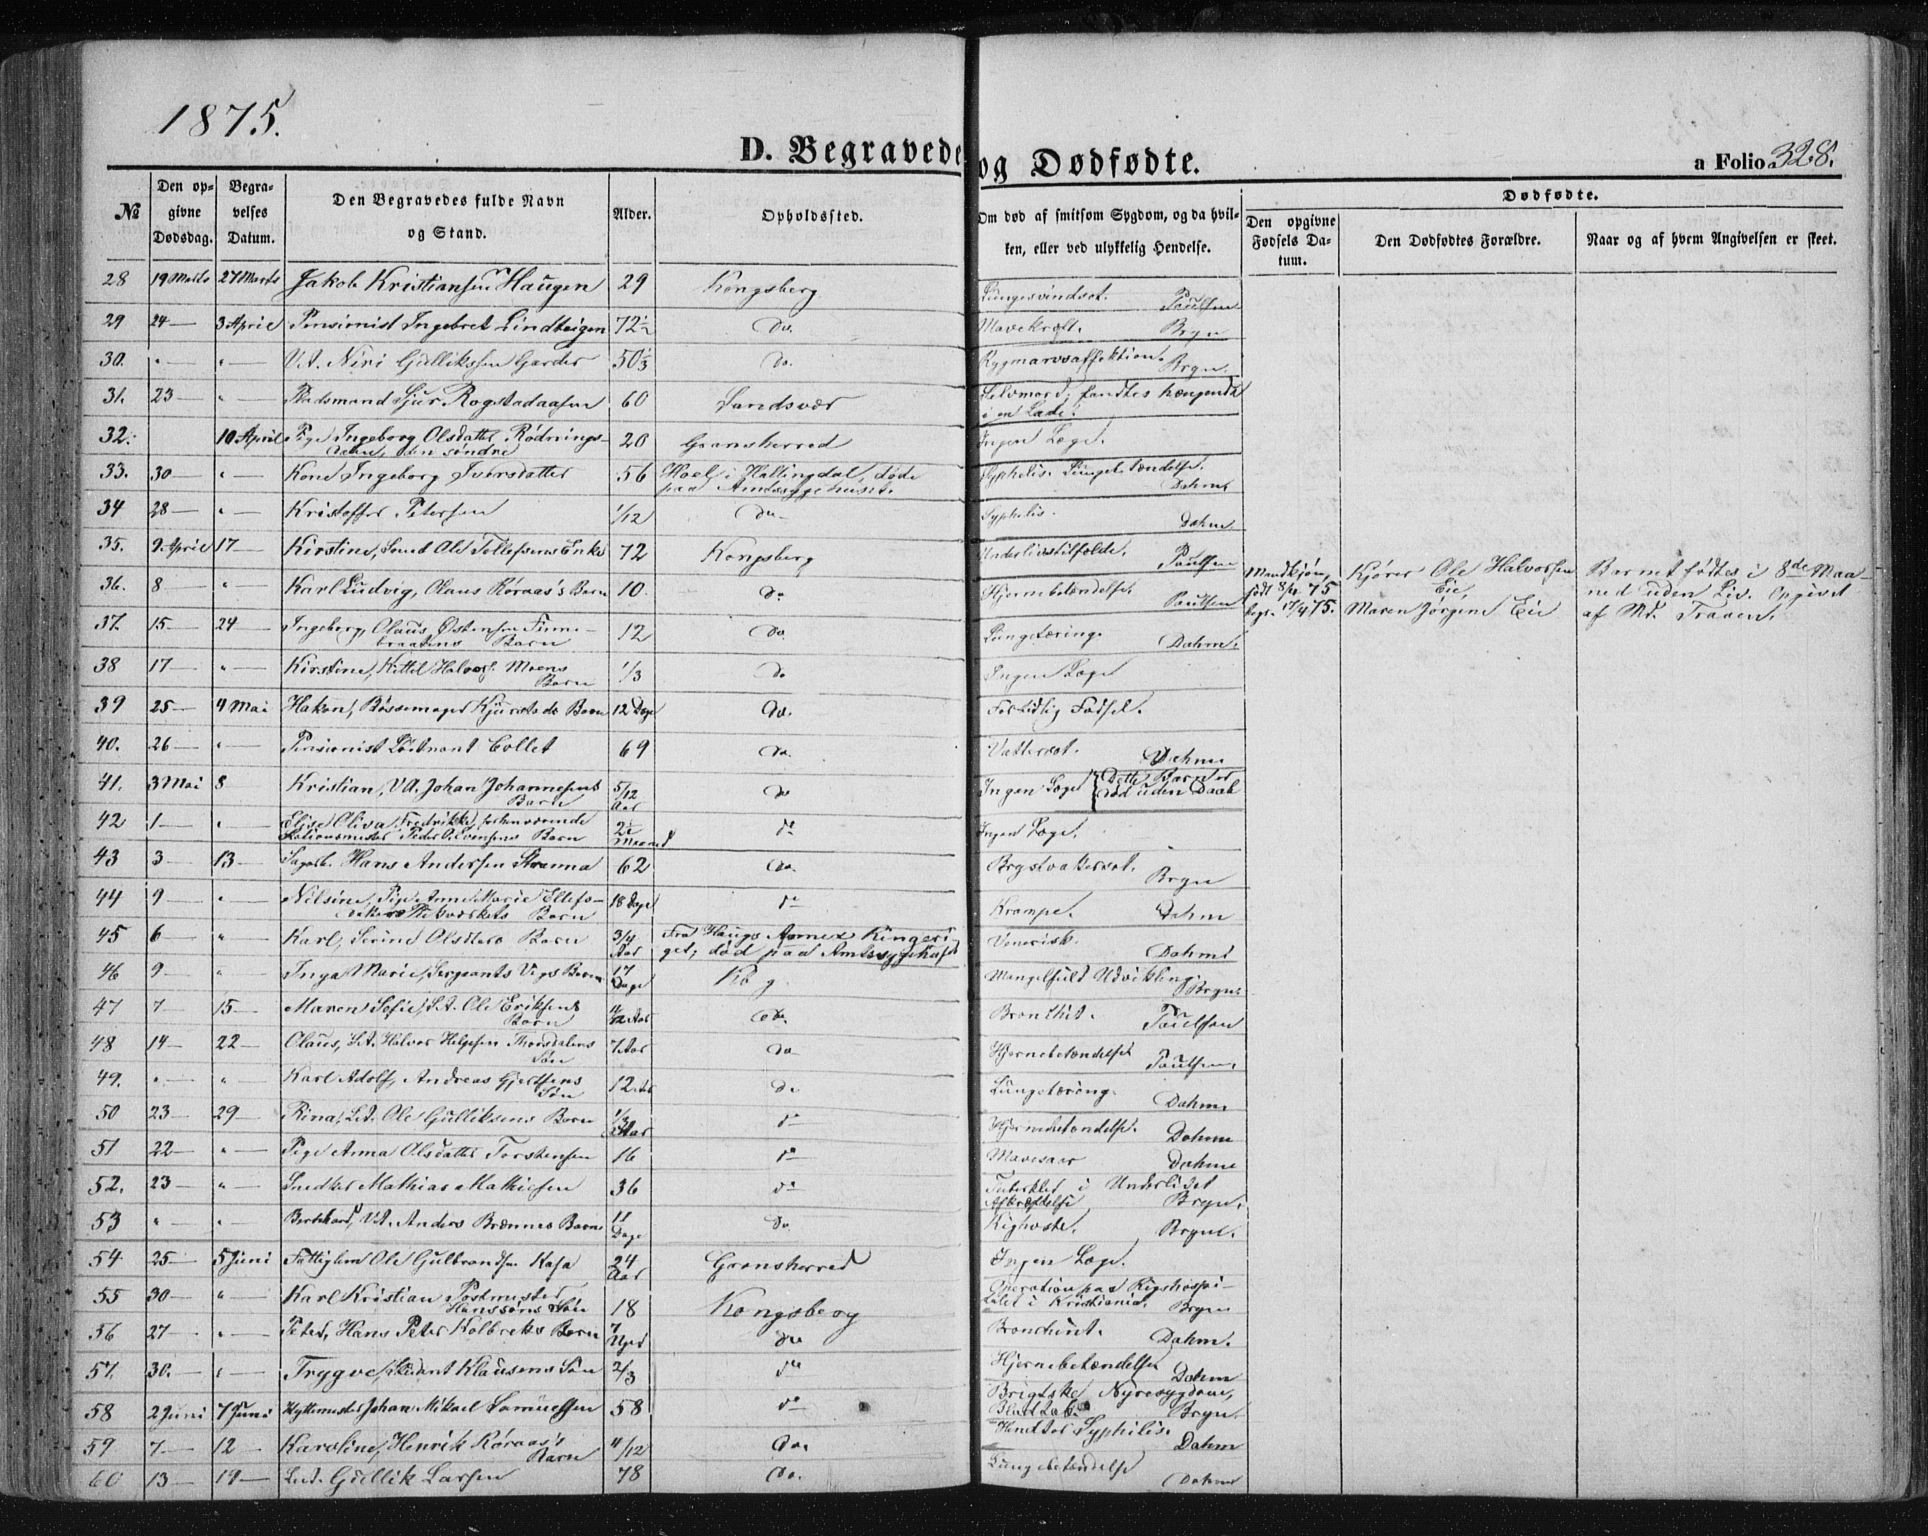 1875.
D. Begravede og Dødfødte.
a Folio 328.
№
Den opgivne Dødsdag.
Begravelses Datum.
Den Begravedes fulde Navn og Stand.
Alder.
Opholdssted.
Om død af smitsom Sygdom, og da hvilken, eller ved ulykkelig Hendelse.
Dødfødte.
Den opgivne Fødsels Datum.
Den Dødfødtes Forældre.
Naar og af hvem Angivelsen er skeet.
28 19 Marts 27 Marts Jakob Kristiansen Haugen 29 Kongsberg Lungesvindsot. Paulsen
29 24 — 3 April Pensionist Ingebret Lindteigen 72½ Do. Mavekræft. Bryn
30. " " Niri Gulliksen 50⅓ Do. Rygmarvsaffektion. Bryn.
31. 23 — " Pladsmand Sjur Rogstadaasen 60 Sandsvær Selvmord; fandtes hængende
i en Lade.
32. 10 April Pige Ingeborg Olsdatter Rødnings-
den søndre 20 Gransherred Ingen Læge.
33. 30 — " Kone Ingeborg Iversdatter 56 Hoel i Hallingdal, døde
paa Amtssygehuset. Syphilis. Lungebetændelse.
Dahm
34 28 — " Kristoffer Petersen 1/12 Do — Syphilis. Dahm
35. 9 April 17 — Kirstine, Smed Ole Tollefsens Enke 72 Kongsberg Underlivstilfælde. Paulsen
36. 8 — " Karl Ludvig, Olaus Røraas's Barn 10. Do Hjernebetændelse. Paulsen
Mandkjøn, født 8/4 75 begr. 17/4 75. Kjører Ole Halvorsen
Eie,
Maren Jørgine Eie
Barnet fødtes i 8de Maa-
ned uden Liv. Opgivet
af Md. Traaen.
37. 15 — 24 — Ingeborg, Olaus Østensen Finne-
braatens Barn 12 Do Lungetæring. Dahm.
38 17 — " Kirstine, Kittel Halvors. Moens
Barn 1/3 Do Ingen Læge
39 25 — 4 Mai Hakon, Bøssemager Kjurstads Barn 12 Dage Do. For tidlig Fødsel.
40. 26 — " Pensionist Løitnant Collet 69 Do. Vattersot. Dahm.
41. 3 Mai 8 Kristian, Johan Johannesens
Barn 5/12 Aar Do Ingen Læge { Dette Barn er
død uden Daab
42 1 — " Elise Oliva Fredrikke, forhenværende
Stationsmester Peder Evensens Barn Do Ingen Læge.
43 3 — 13 — Hans Andersen Stranna 62 Do. Brystvattersot. Bryn
44 9 — " Nilsine, Pige Anne Marie Ellefs-
Barn 18 Dage Do Krampe. Dahm
45 6 — " Karl, Serine Olsdters Barn 3/4 Aar Fra Haugs Annex Ringeri-
get; død paa Amtssygehuset Venerisk. Dahm
46 9 — " Inga Marie, Sergeants Barn 17 Dage Kbg. Mangelfuld Udvikling. Bryn.
47 7 — 15 — Maren Sofie, Ole Eriksens
Barn Do. Bronchit. Paulsen
48 14 — 22 — Olaus, Halvor
Søn 7 Aar Do Hjernebetændelse Paulsen.
49. " " Karl Adolf, Andreas Gjertsens
Søn 12 Aar Do Lungetæring. Dahm.
50 23 — 29 — Rina, Ole Gulliksens Barn 1/3 Aar Do Hjernebetændelse. Dahm
51 22 — " — Pige Anna Olsdatter Torstensen 16 Do Mavesaar Dahm
52. 23 — " Snedker Mathias Mathiesen 36 Do Tuberkler i Underlivet
Afkræftelse Bryn.
53 " " — Anders Barn 11 Dage Do Kighoste. Bryn.
54 25 — 5 Juni Fattiglem Ole Gulbrandsen Kasa 24 Aar Gransherred Ingen Læge.
55 30 — " Karl Kristian Postmester
Hanssøns Søn 18 Kongsberg Operation paa Rigshospi-
talet i Kristiania. Bryn
56 27 — " — Peter, Hans Peter Kolbreks Barn 7 Uger Do Bronchit. Dahm.
57. 30. — " Trygve, Klausens Søn 2/3 Do Hjernebetændelse Dahm
58 2 Juni 7 Juni Hyttemester Johan Mikael Samuelsen 58 Do Brigtske Nyresygdom,
Bryn.
59 7 — 12 — Karoline, Henrik Røraas's
Barn 4/12 Do. Syphilis. Dahm
60 13 — 19 — Gullik Larsen 78 Do. Lungebetændelse Dahm